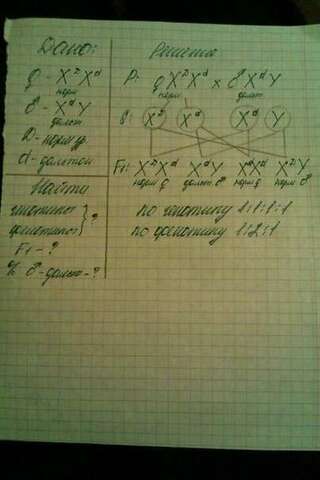 Дано:
♀ - X^D X^d
норм
♂ - X^d Y
дальт
D - норм
d - дальтон
Найти
генотипы
фенотипы } ?
F1 - ?
% ♂ - дальт - ?
Решение
P: ♀ X^D X^d × ♂ X^d Y
норм дальт
X^D X^d X^d Y
F1:
норм ♀ дальт норм ♀ норм ♂
по генотипу 1:1:1:1
по фенотипу 1:2:1